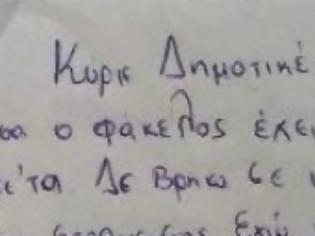 Κυριε Δημοτικέ
σα ο φάκελος έχει
Δε βρηκω σε
Εχω